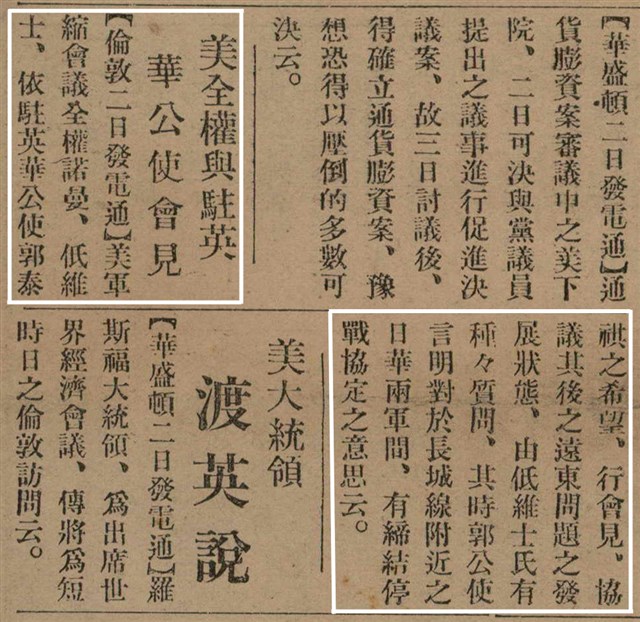 【華盛頓二日發電通】通
貨膨資案審議中之美下
院、二日可決與黨議員
提出之議事進行促進決
議案、故三日討議後、
得確立通貨膨資案、豫
想恐得以壓倒的多數可
決云。
美全權與駐英
華公使會見
【倫敦二日發電通】美軍
縮會議全權諾曼、低維
士、依駐英華公使郭泰
祺之希望、行會見、協
議其後之遠東問題之發
展狀態、由低維士氏有
種々質問、其時郭公使
言明對於長城線附近之
日華兩軍間、有締結停
戰協定之意思云。
美大統領
渡英說
【華盛頓二日發電通】羅
斯福大統領、爲出席世
界經濟會議、傳將爲短
時日之倫敦訪問云。